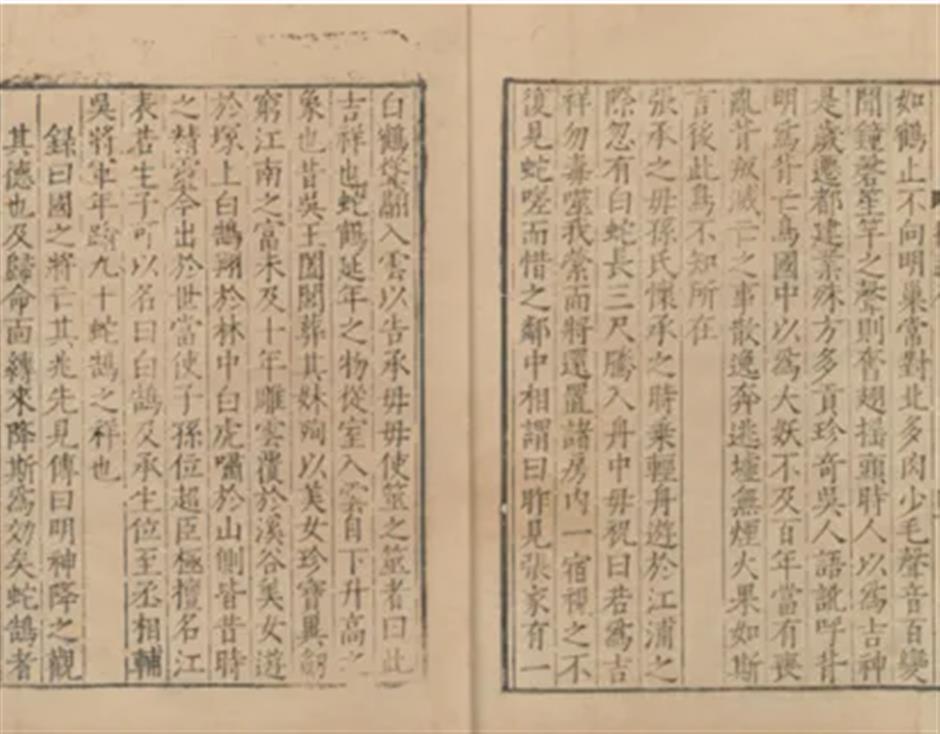 如鶴止不向明巢常對北多肉少毛聲音百變
聞鐘磬笙竽之聲則奮翅搖頭時人以爲吉神
是歲遷都建業殊方多貢珍奇吳人語訛呼背
明爲背亡鳥國中以爲大妖不及百年當有喪
亂背叛滅亡之事散逸奔逃墟無煙火果如斯
言後此鳥不知所在
張承之母孫氏懷承之時乘輕舟遊於江浦之
際忽有白蛇長三尺騰入舟中母祝曰若爲吉
祥勿毒噬我縈而將還置諸房內一宿視之不
復見蛇嗟而惜之鄰中相謂曰昨見張家有一
白鶴聳翮入雲以告承母母使筮之筮者曰此
吉祥也蛇鶴延年之物從室入雲自下升高之
象也昔吳王闔閭葬其妹殉以美女珍寶異劒
窮江南之富未及十年雕雲覆於溪谷美女遊
於塚上白鵠翔於林中白虎嘯於山側皆昔時
之精靈今出於世當使子孫位超臣極擅名江
表若生子可以名曰白鵠及承生位至丞相輔
吳將軍年踰九十蛇鵠之祥也
錄曰國之將亡其兆先見傳曰明神降之觀
其德也及歸命面縛來降斯爲効矣蛇鵠者